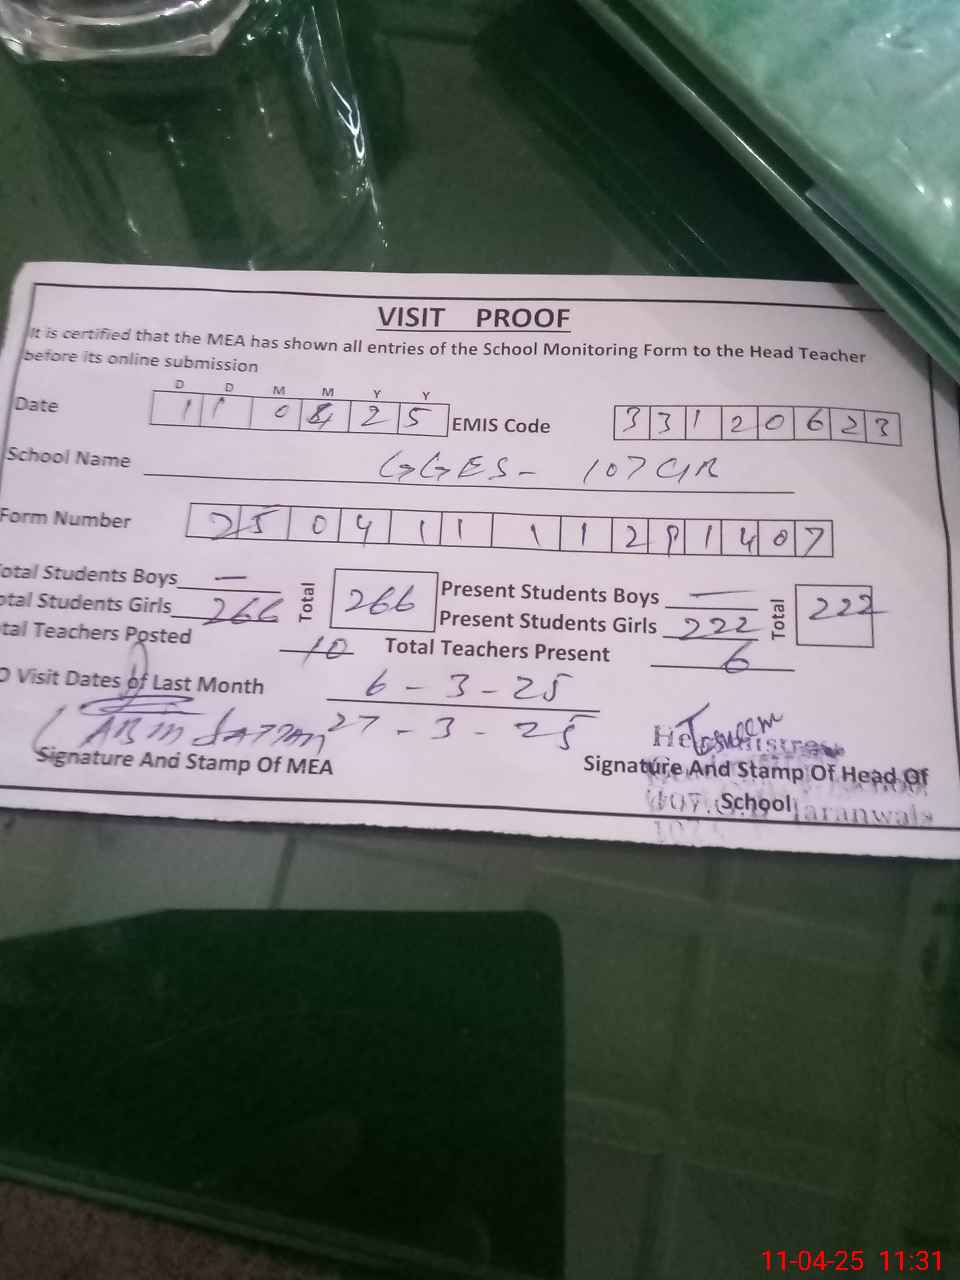 VISIT PROOF
It is certified that the MEA has shown all entries of the School Monitoring Form to the Head Teacher
before its online submission
D D M M Y Y
Date 11 04 25 EMIS Code 33120623
School Name GGES- 107 GR
Form Number 25041111 1407
otal Students Boys — Total 266 Present Students Boys — Total 222
otal Students Girls 266 Present Students Girls 222
tal Teachers Posted 10 Total Teachers Present 6
O Visit Dates of Last Month 6-3-25
27-3-25
Signature And Stamp Of MEA
Signature And Stamp Of Head Of
School
107 Jaranwala
11-04-25 11:31